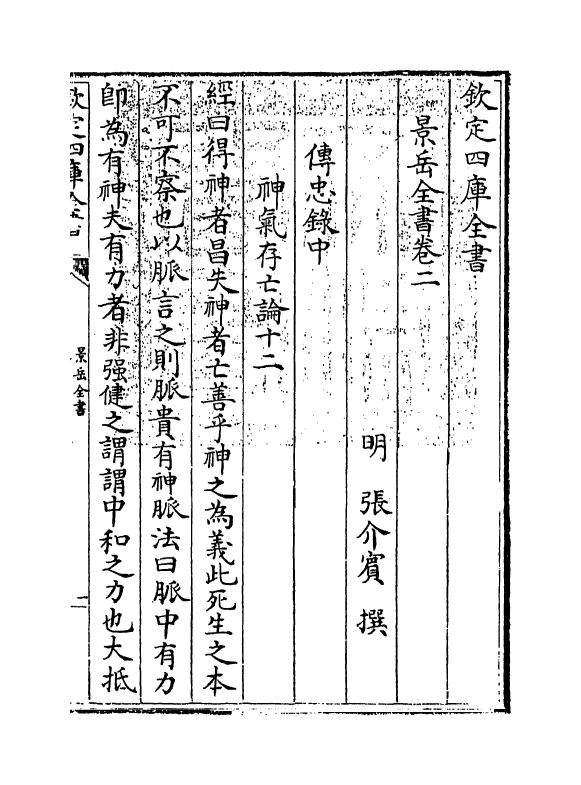 欽定四庫全書
景岳全書卷二
明 張介賓 撰
傳忠錄中
神氣存亡論十二
經曰得神者昌失神者亡善乎神之為義此死生之本
不可不察也以脈言之則脈貴有神脈法曰脈中有力
即為有神夫有力者非强健之謂謂中和之力也大抵
欽定四庫全書
景岳全書
二